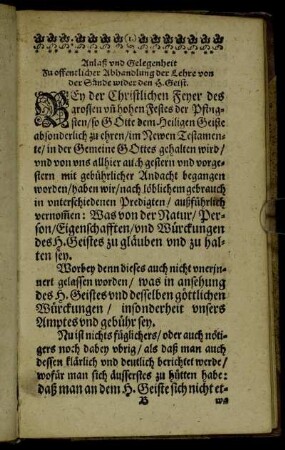 (1.)
Anlaß vnd Gelegenheit
Zu offentlicher Abhandlung der Lehre von
der Sünde wider den H. Geist.
BEy der Christlichen Feyer des
grossen vñ hohen Festes der Pfing-
sten/ so GOtte dem Heiligen Geiste
absonderlich zu ehren/ im Newen Testamen-
te/ in der Gemeine GOttes gehalten wird/
vnd von vns allhier auch gestern vnd vorge-
stern mit gebührlicher Andacht begangen
worden/ haben wir/ nach löblichem gebrauch
in vnterschiedenen Predigten/ außführlich
vernom̃en: Was von der Natur/ Per-
son/ Eigenschafften/ vnd Würckungen
des H. Geistes zu gläuben vnd zu hal-
ten sey.
Worbey denn dieses auch nicht vnerin-
nert gelassen worden/ was in ansehung
des H. Geistes vnd desselben göttlichen
Würckungen/ insonderheit vnsers
Amptes vnd gebühr sey.
Nu ist nichts füglichers/ oder auch nöti-
gers noch dabey vbrig/ als daß man auch
dessen klärlich vnd deutlich berichtet werde/
wofür man sich äusserstes zu hütten habe:
daß man an dem H. Geiste sich nicht et-
B wa